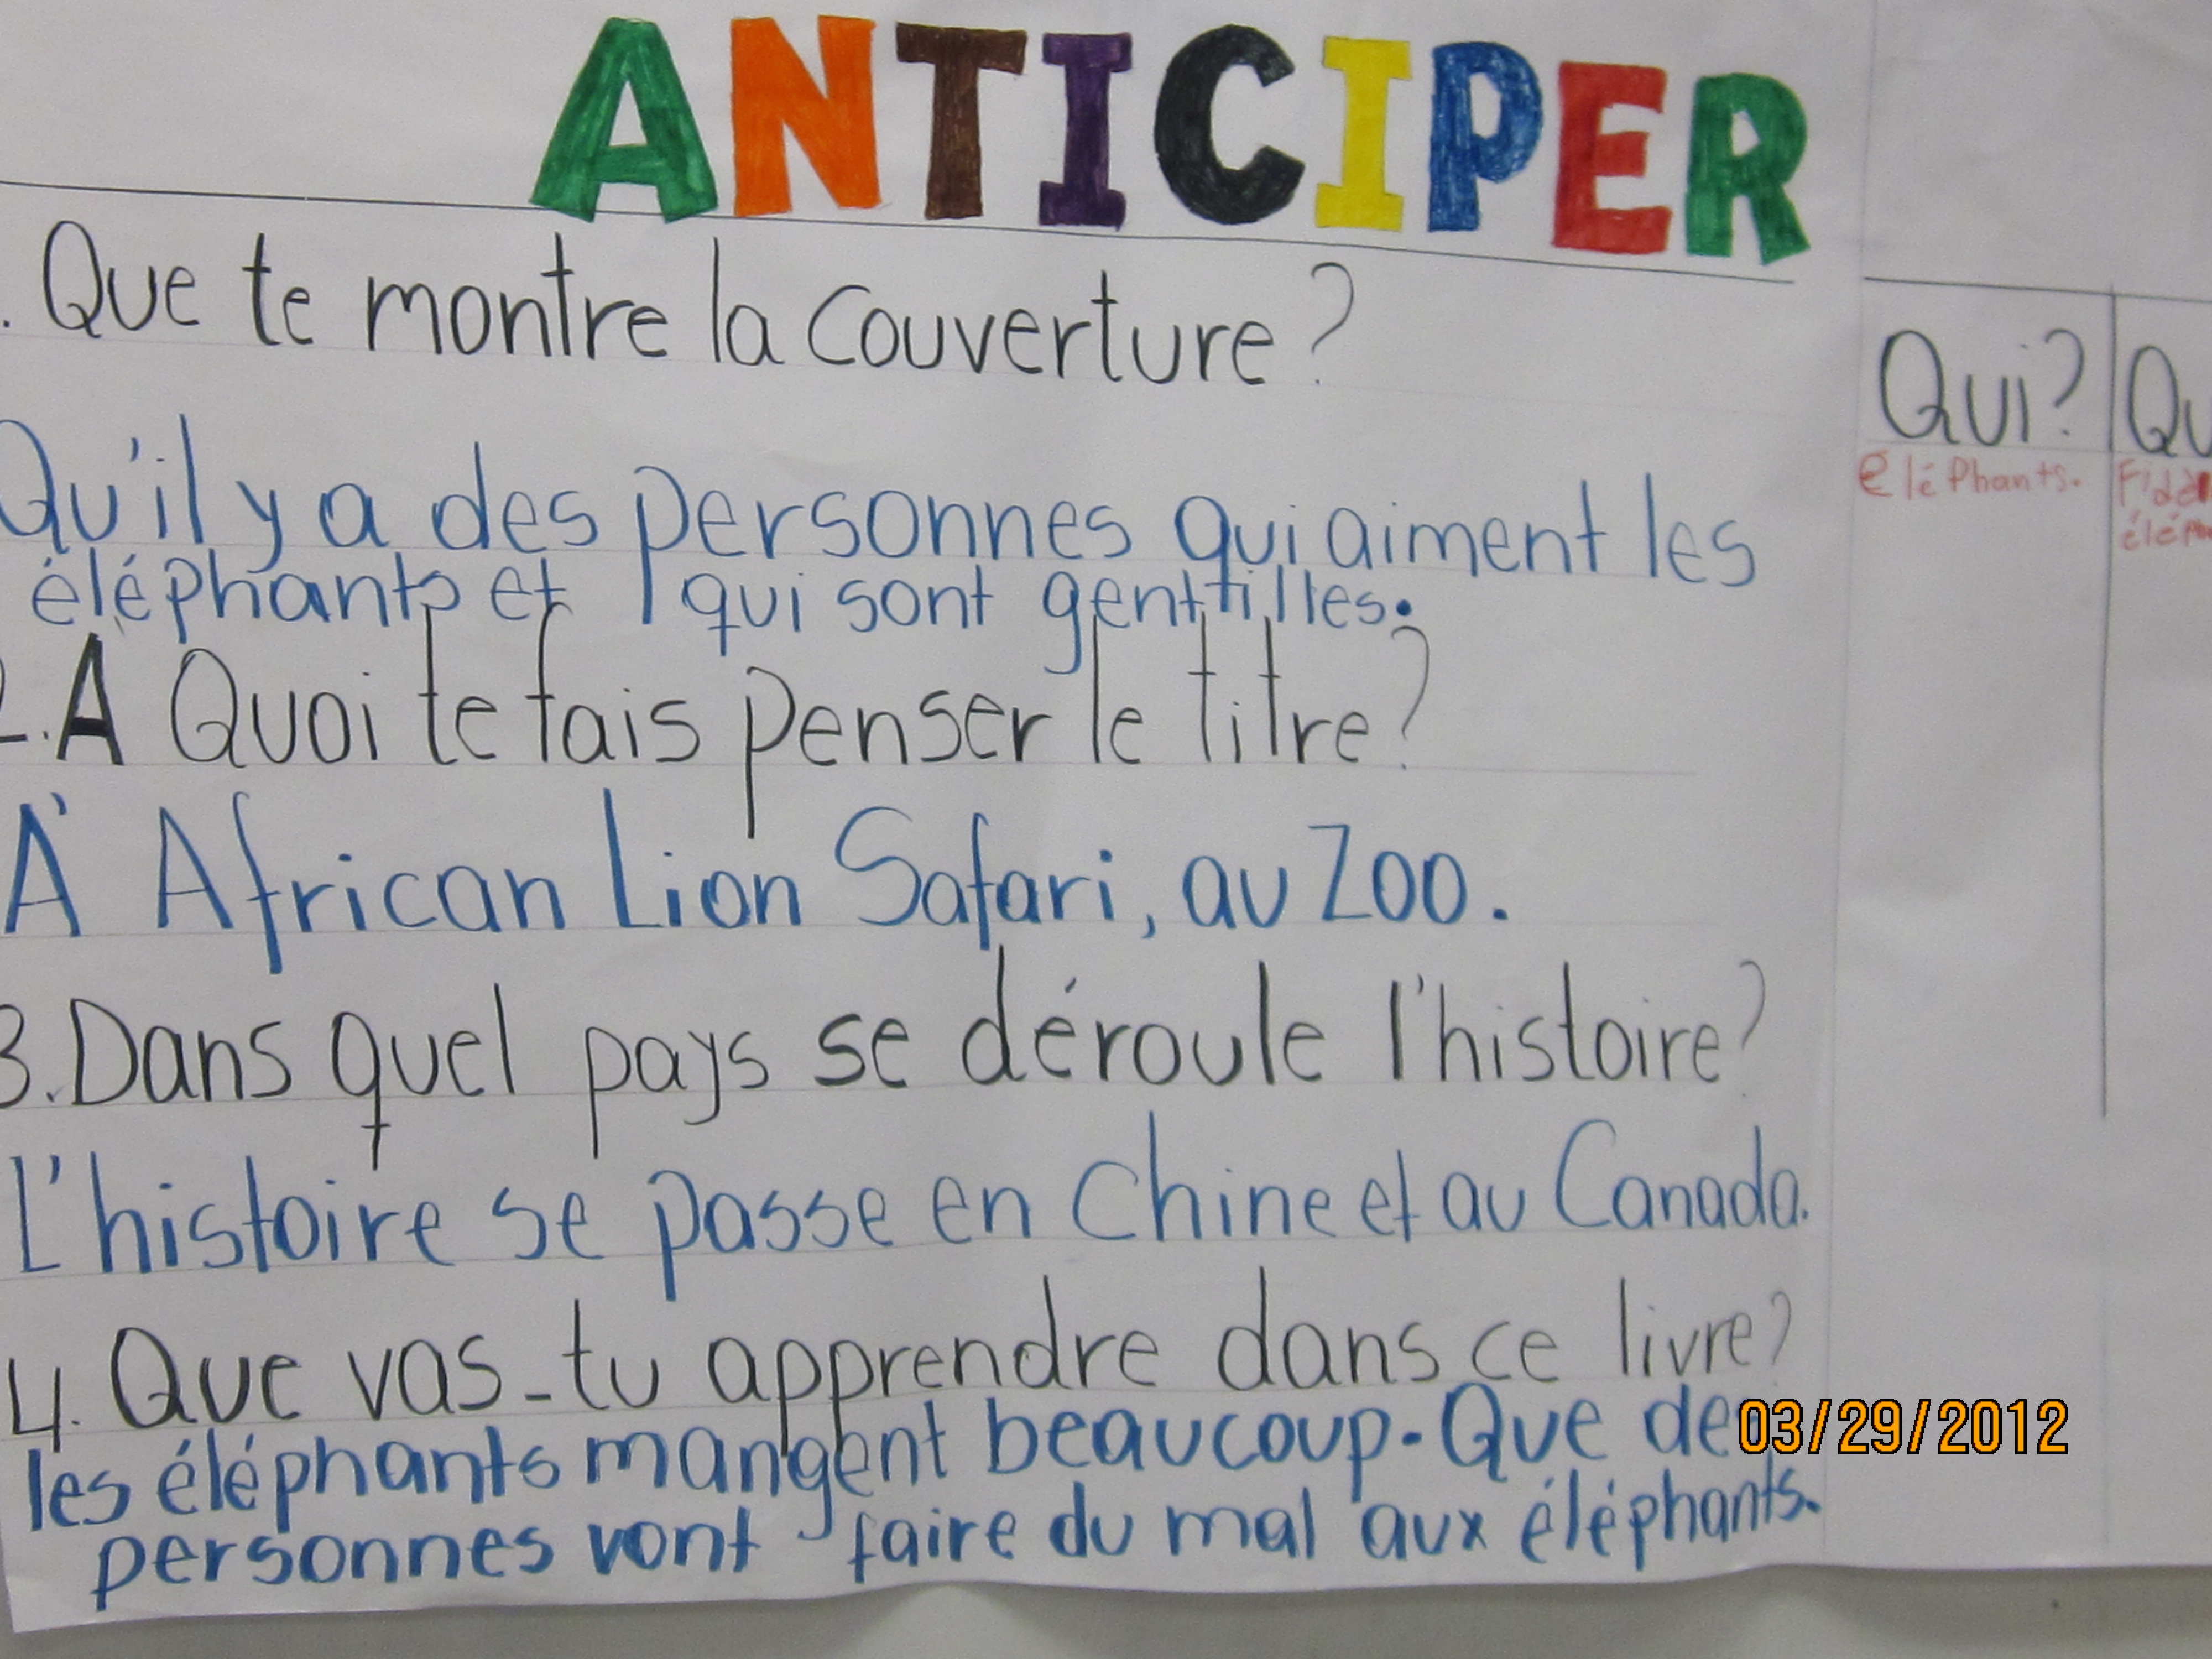 ANTICIPER
. Que te montre la couverture?
Qu'il y a des personnes qui aiment les
éléphants et qui sont gentilles.
2. A Quoi te fais penser le titre?
À African Lion Safari, au Zoo.
3. Dans quel pays se déroule l'histoire?
L'histoire se passe en Chine et au Canada.
4. Que vas-tu apprendre dans ce livre?
les éléphants mangent beaucoup. Que de
personnes vont faire du mal aux éléphants.
Qui?
éléphants.
Qu
03/29/2012